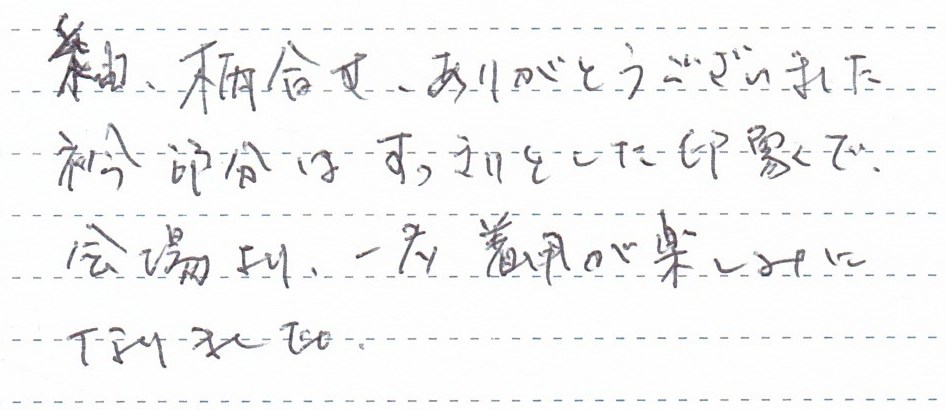 紬、柄合せ、ありがとうございました
衿部分はすっきりとした印象で、
会場より、一番着用が楽しみに
なりました。